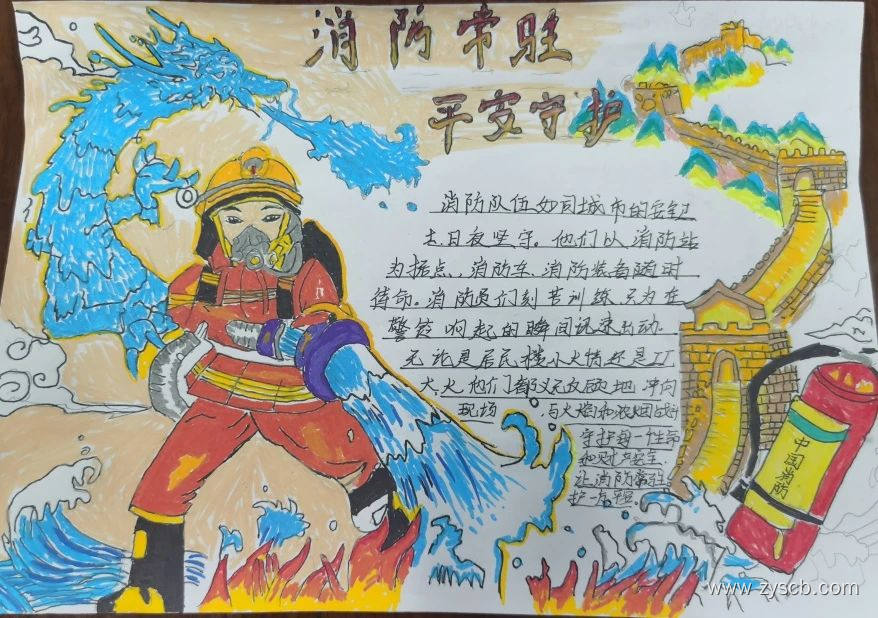 消防常驻
平安守护
消防队伍如同城市的安全卫
士,日夜坚守。他们以消防站
为据点,消防车、消防装备随时
待命。消防员们刻苦训练,只为在
警铃响起的瞬间迅速出动.
无论是居民楼小火情还是工厂
大火他们都义无反顾地冲向
现场,与火焰和浓烟战斗
守护每一个生命
和财产安全.
让消防常驻
护一方平安。
中国消防
www.zyscb.com